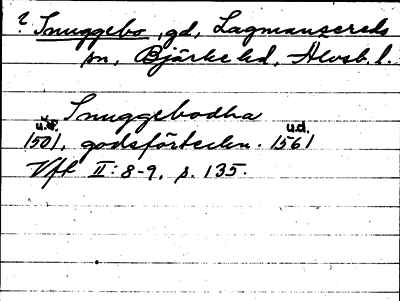 ? Snuggebo, gd, Lagmansereds
sn, Bjärke hd, Älvsb. l.
Snuggebodha
u.å. u.d.
1501, godsförteckn. 1561
Vfl II: 8-9, s. 135.